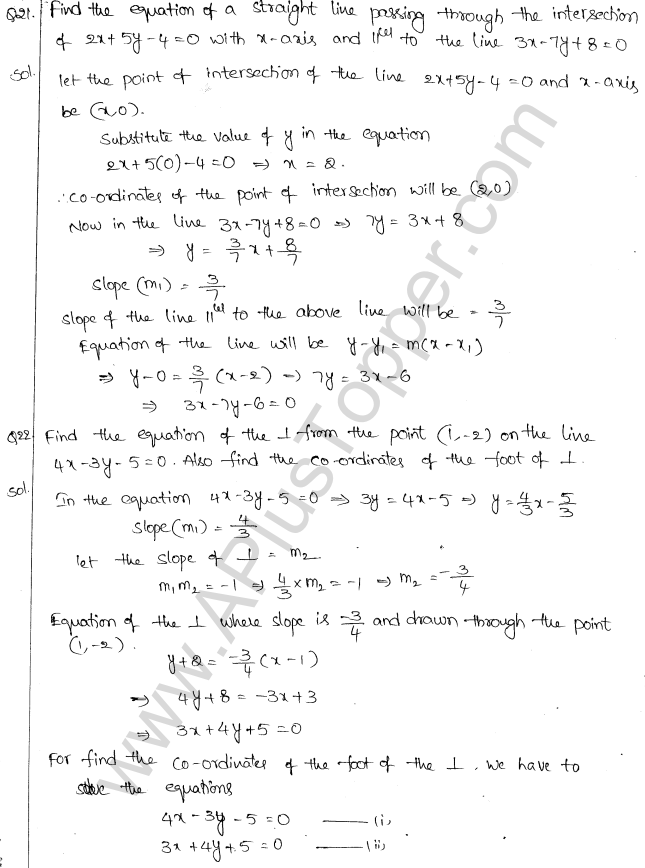 Q21. Find the equation of a straight line passing through the intersection
of 2x+5y-4=0 with x-axis and ||el to the line 3x-7y+8=0
Sol. let the point of intersection of the line 2x+5y-4=0 and x-axis
be (x,0).
Substitute the value of y in the equation
2x+5(0)-4=0 ⇒ x=2.
∴ co-ordinates of the point of intersection will be (2,0)
Now in the line 3x-7y+8=0 ⇒ 7y = 3x+8
⇒ y = 3/7 x + 8/7
Slope (m1) = 3/7
Slope of the line ||el to the above line will be = 3/7
Equation of the line will be y-y1=m(x-x1)
⇒ y-0 = 3/7 (x-2) ⇒ 7y = 3x-6
⇒ 3x-7y-6=0
Q22 Find the equation of the ⊥ from the point (1,-2) on the line
4x-3y-5=0. Also find the co-ordinates of the foot of ⊥.
Sol. In the equation 4x-3y-5=0 ⇒ 3y = 4x-5 ⇒ y = 4/3 x - 5/3
Slope(m1) = 4/3
let the slope of ⊥ = m2
m1m2 = -1 ⇒ 4/3 × m2 = -1 ⇒ m2 = -3/4
Equation of the ⊥ where slope is -3/4 and drawn through the point
(1,-2).
y+2 = -3/4 (x-1)
⇒ 4y+8 = -3x+3
⇒ 3x+4y+5=0
For find the co-ordinates of the foot of the ⊥. we have to
solve the equations
4x-3y-5=0 —— (i)
3x+4y+5=0 —— (ii)
www.APlusTopper.com